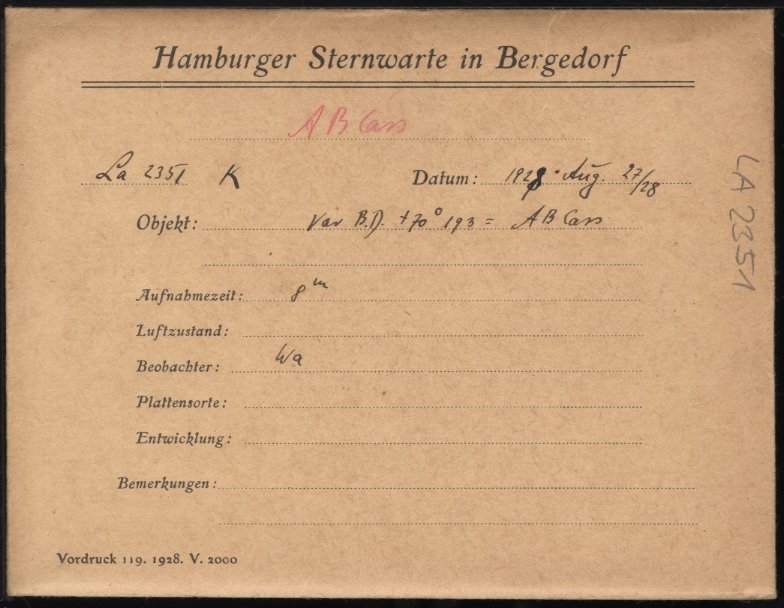 Hamburger Sternwarte in Bergedorf
AB Cass
La 2351 K Datum: 1928 Aug. 27/28
Objekt: Var B.D. +70° 193 = AB Cass
Aufnahmezeit: 8ᵐ
Luftzustand:
Beobachter: Wa
Plattensorte:
Entwicklung:
Bemerkungen:
Vordruck 119. 1928. V. 2000
LA 2351